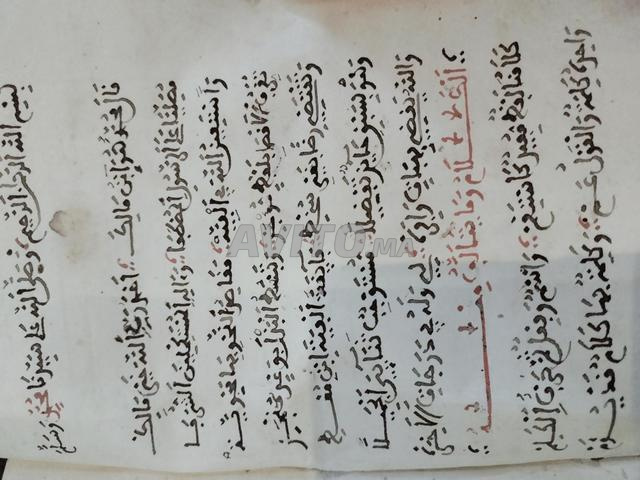 بسم الله الرحمن الرحيم وصلى الله على سيدنا محمد وسلم
قال محمد هو ابن مالك احمد ربي الله خير مالك
مصليا على الرسول المصطفى وآله المستكملين الشرفا
وأستعين الله في ألفيه مقاصد النحو بها محويه
تقرب الأقصى بلفظ موجز وتبسط البذل بوعد منجز
وتقتضي رضا بغير سخط فائقة ألفية ابن معط
وهو بسبق حائز تفضيلا مستوجب ثنائي الجميلا
والله يقضي بهبات وافره لي وله في درجات الآخره
الكلام وما يتألف منه
كلامنا لفظ مفيد كاستقم واسم وفعل ثم حرف الكلم
واحده كلمة والقول عم وكلمة بها كلام قد يؤم
AVITO.MA